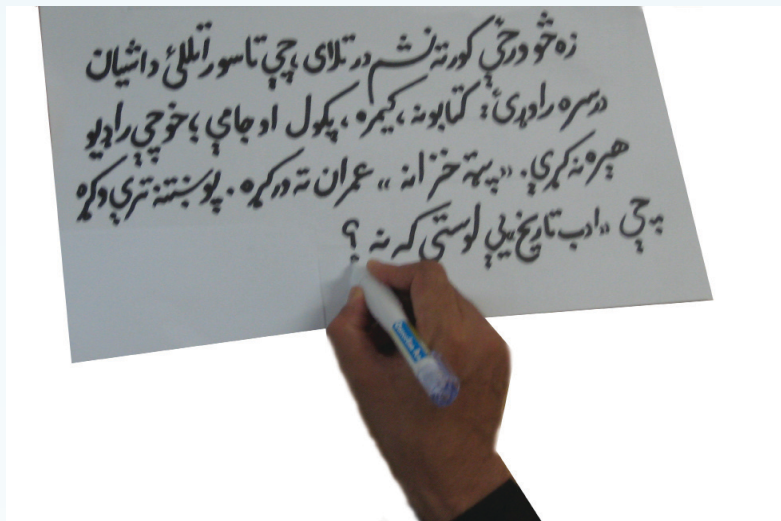 زه څو ورځې کور ته نشم درتلای ، چې تاسو راتللئ دا شیان
درسره راوړئ: کتابونه ، کیمره ، پکول او جامې ؛ خو چې راډیو
هېره نه کړې. «پټه خزانه» عمران ته ورکړه. پوښتنه ترې وکړه
چې «ادب تاریخ» یې لوستی که نه ؟